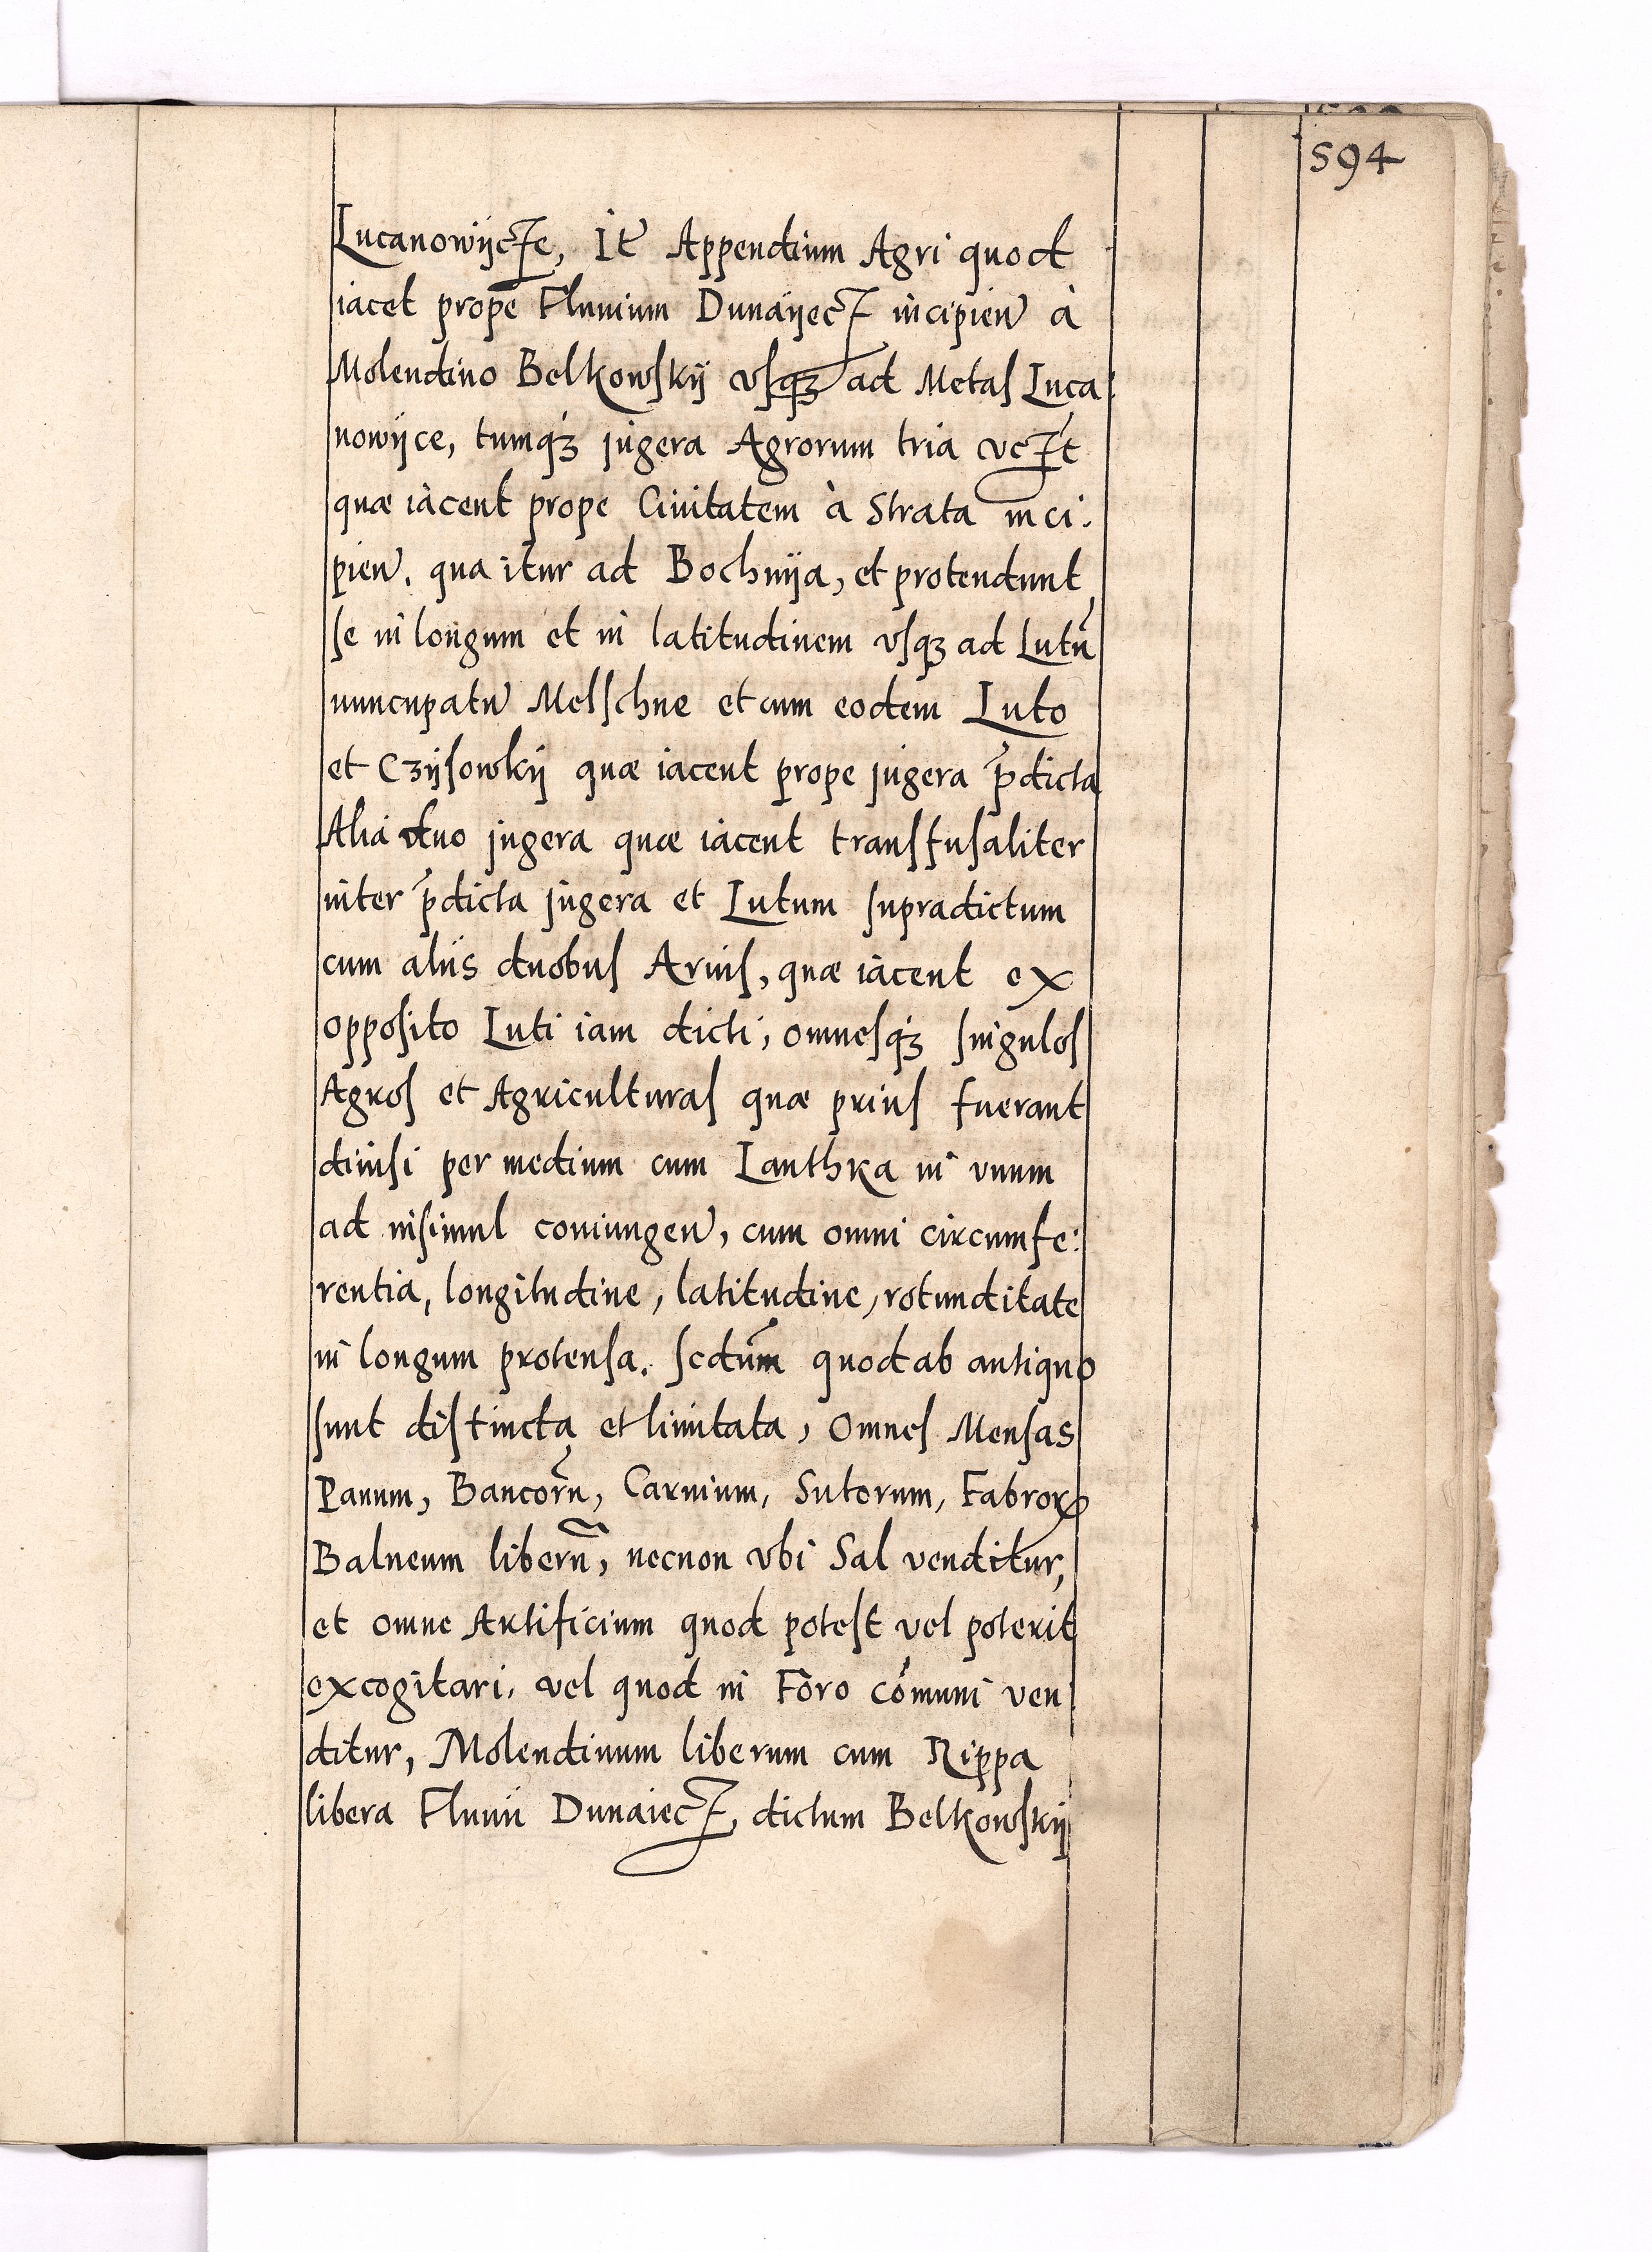 594
Lucanowÿcze, It̃ Appendium Agri quod
iacet prope Fluuium Dunaÿecz incipien̄ à
Molendino Belkowskÿ vsqʒ ad Metas Luca:
nowÿce, tumqʒ jugera Agrorum tria
quæ iàcent prope Ciuitatem à Strata inci:
pien̄. qua itur ad Bochnÿa, et protendunt
se in longum et in latitudinem vsqʒ ad Lutū
nuncupatū Melschne et cum eodem Luto
et Czÿsowkÿ quæ iacent prope jugera p̄dicta
Alia duo jugera quæ iàcent transfusaliter
inter p̄dicta jugera et Lutum supradictum
cum aliis duobus Aruis, quæ iàcent ex
opposito Luti iam dicti, omnesqʒ singulos
Agros et Agriculturas quæ prius fuerant
diuisi per medium cum Lanthka in vnum
ad insimul coniungen̄, cum omni circumfe:
rentia, longitudine, latitudine, rotunditate
in longum protensa. Scdūm quod ab antiquo
sunt distincta et limitata, Omnes Mensas
Panum, Bancorū, Carnium, Sutorum, Fabroꝝ
Balneum liberū, necnon vbi Sal venditur,
et omne Artificium quod potest vel poterit
excogitari, vel quod in Foro cōmuni ven:
ditur, Molendinum liberum cum Rippa
libera Fluuii Dunaiecz, dictum Belkowskÿ